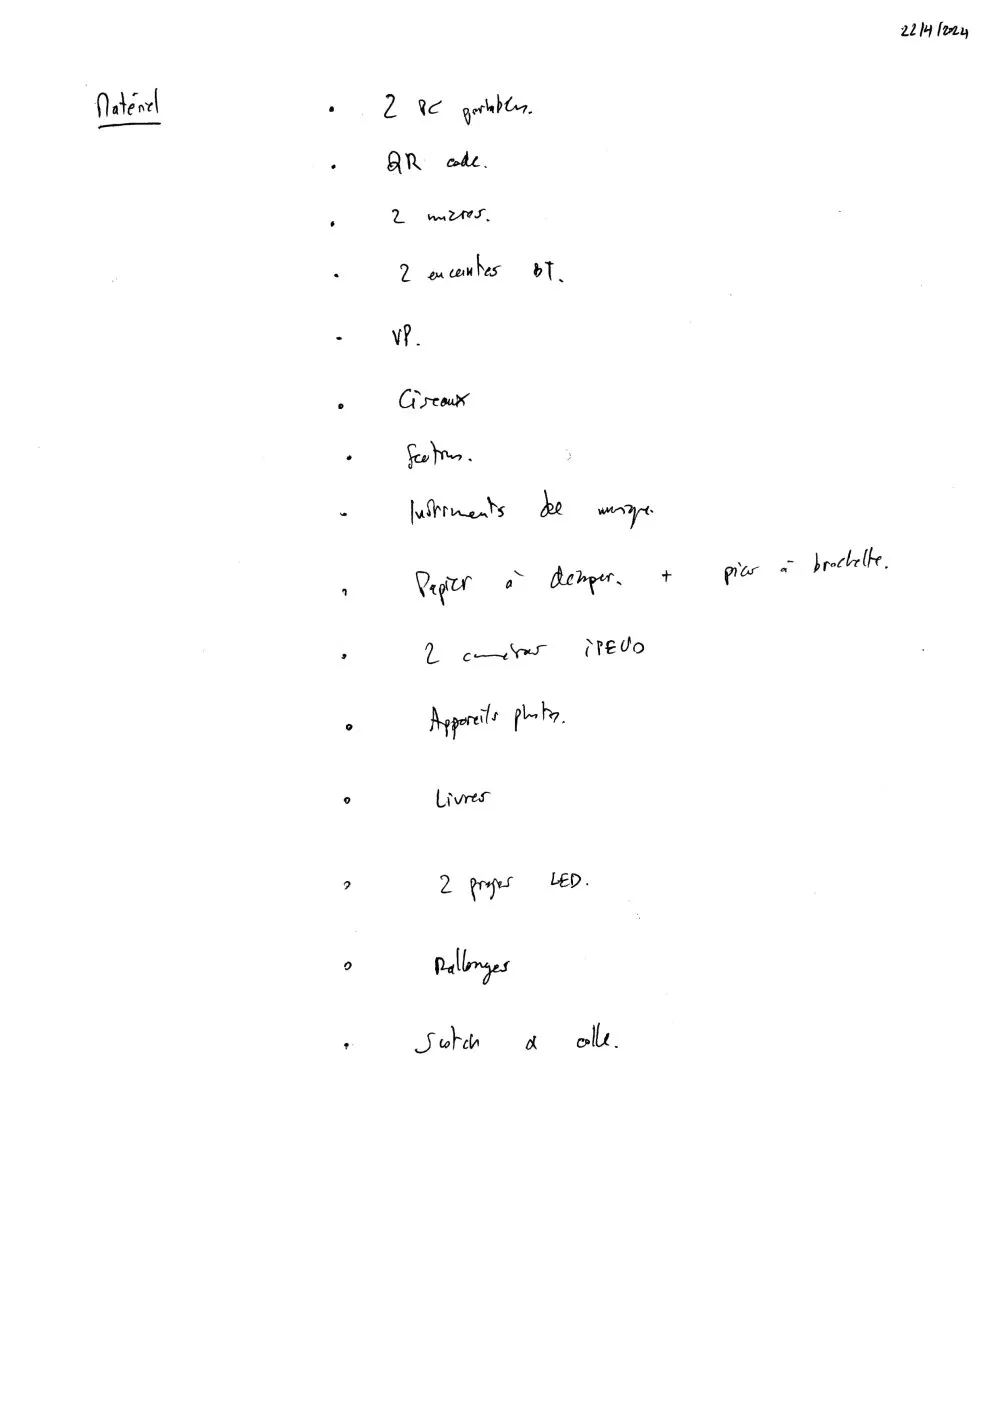 22/4/2024
Matériel
• 2 PC portables.
• QR code.
• 2 micros.
• 2 enceintes BT.
• VP.
• Ciseaux
• feutres.
• Instruments de musique.
• Papier à découper. + pics à brochette.
• 2 caméras iPEVO
• Appareils photos.
• Livres
• 2 projos LED.
• Rallonges
• Scotch & colle.